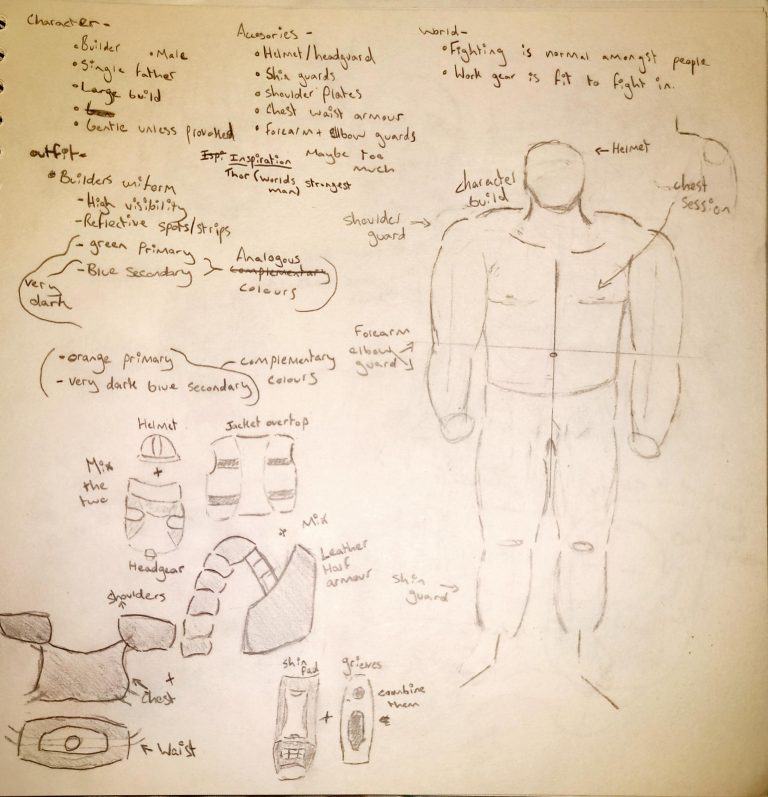 Character-
• Builder • Male
• Single father
• Large build
• Gentle unless provoked
Accesories -
• Helmet/headguard
• Shin guards
• Shoulder Plates
• Chest waist armour
• Forearm + elbow guards
Maybe too
much
World-
• Fighting is normal amongst people
• Work gear is fit to fight in.
Insp: Inspiration
Thor (worlds strongest
man)
outfit-
• Builders uniform
- High visibility
- Reflective spots/strips
- green Primary
- Blue Secondary
very
dark
Analogous
complementary
colours
- orange primary
- very dark blue secondary
complementary
colours
character
build
← Helmet
chest
session
shoulder
guard →
Forearm
elbow
guard
shin
guard →
Helmet
+
Mix
the
two
Headgear
Jacket overtop
+ Mix
Leather
Half
armour
shoulders
+
Chest
← Waist
shin
pad
+
grieves
combine
them